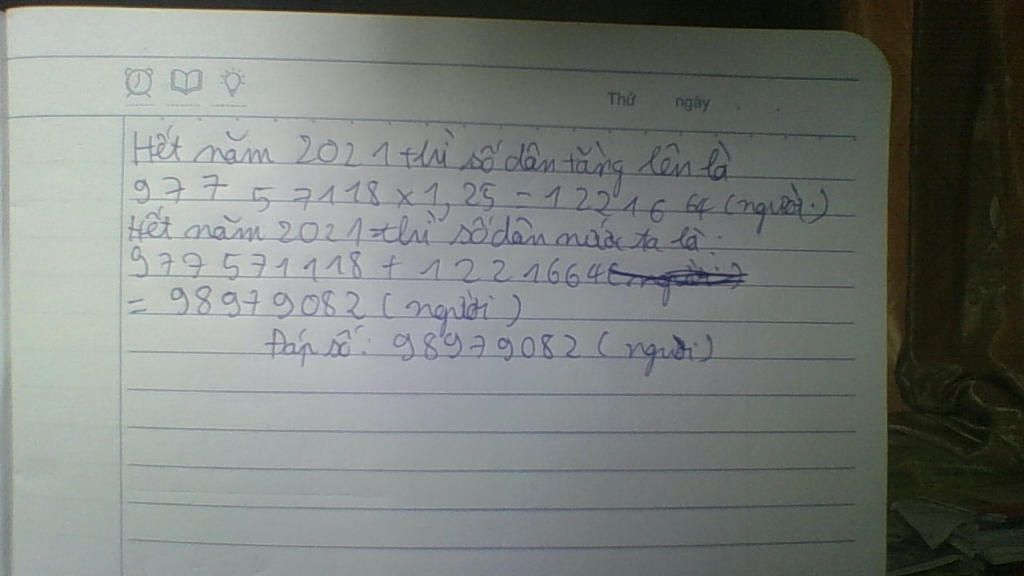 Thứ ngày
Hết năm 2021 thì số dân tăng lên là
977 57118 x 1,25 = 1221664 (người.)
Hết năm 2021 thì số dân nước ta là:
977571118 + 1221664 (người)
= 98979082 (người)
Đáp số: 98979082 (người)